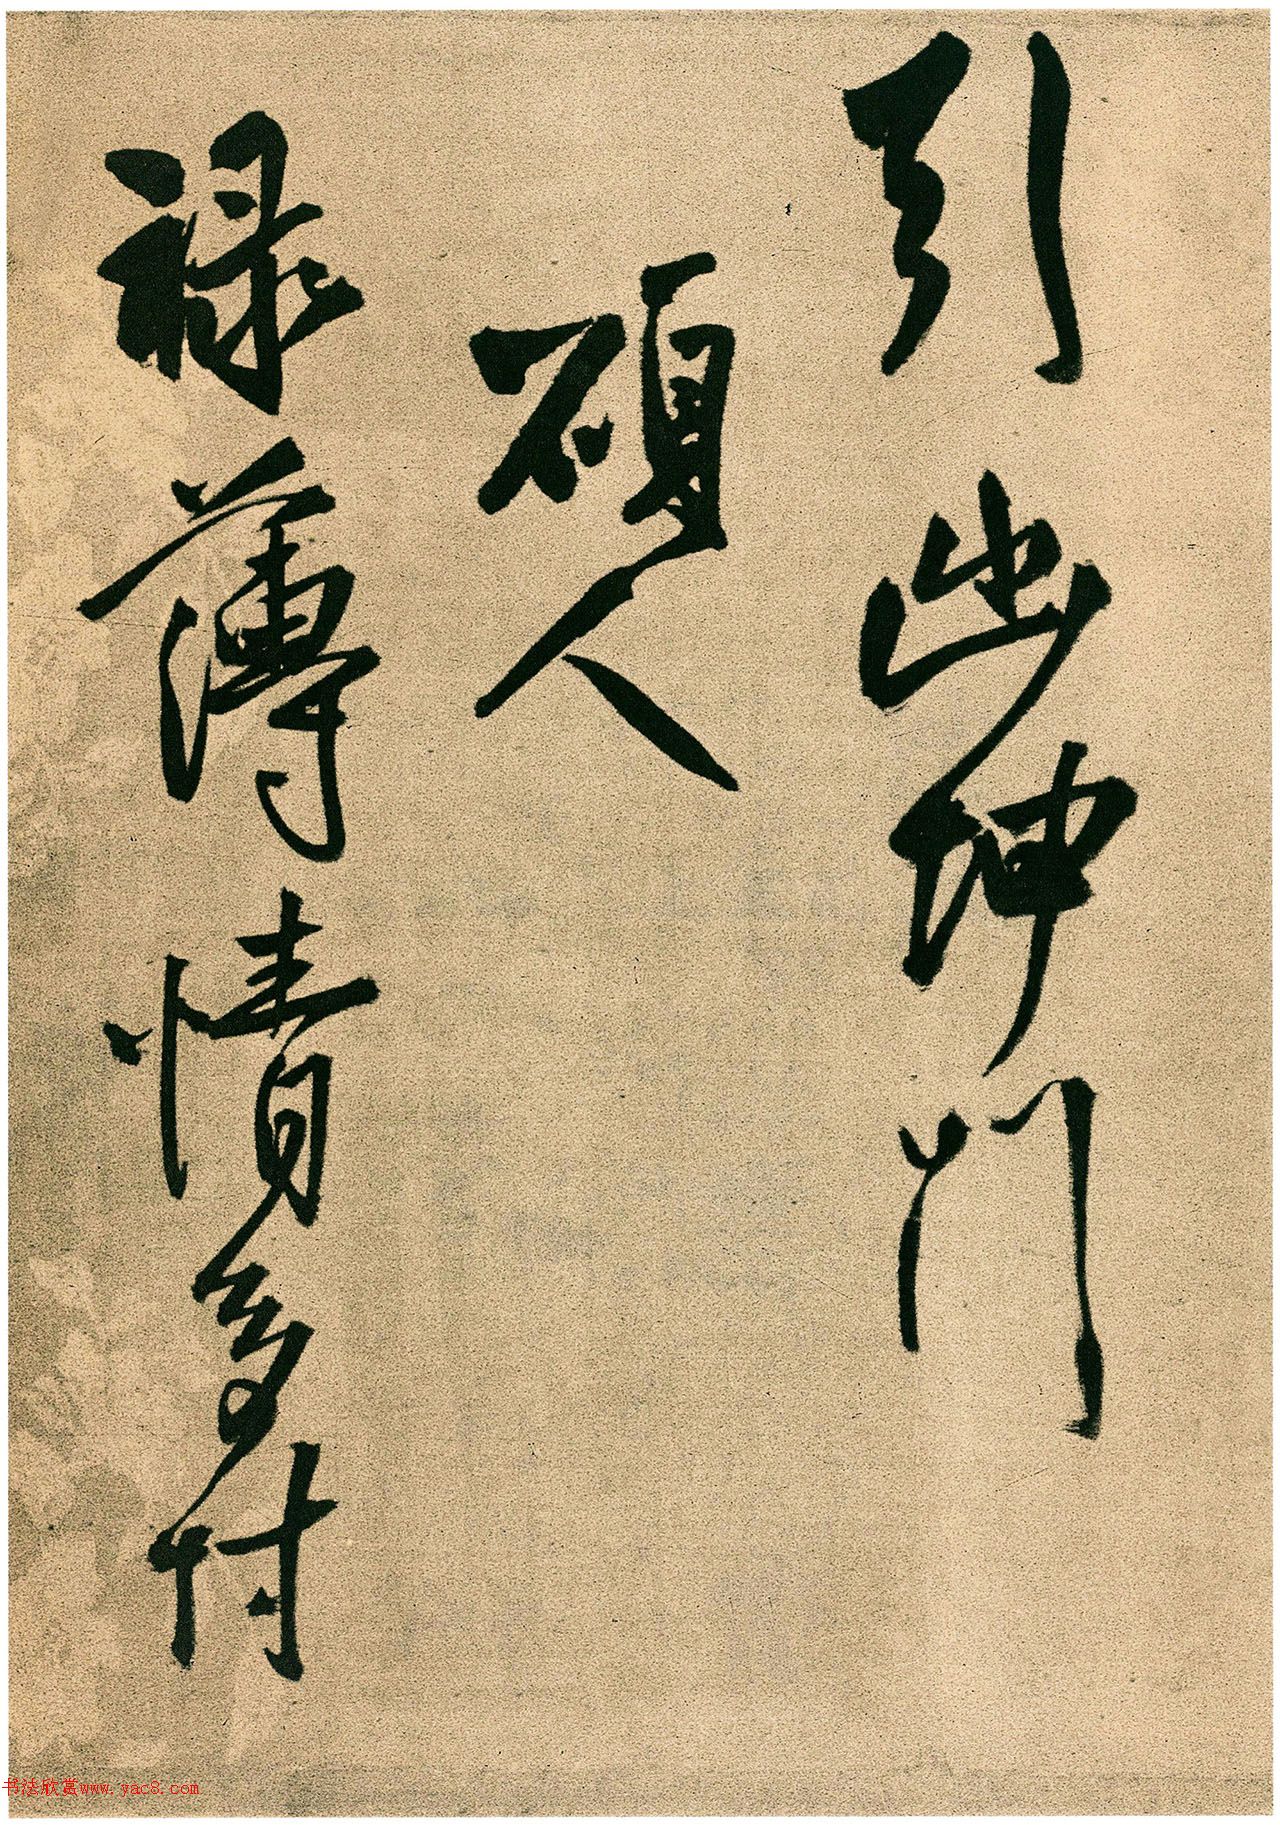 引紳門
碩人
禄薄情多付
书法欣赏www.yac8.com